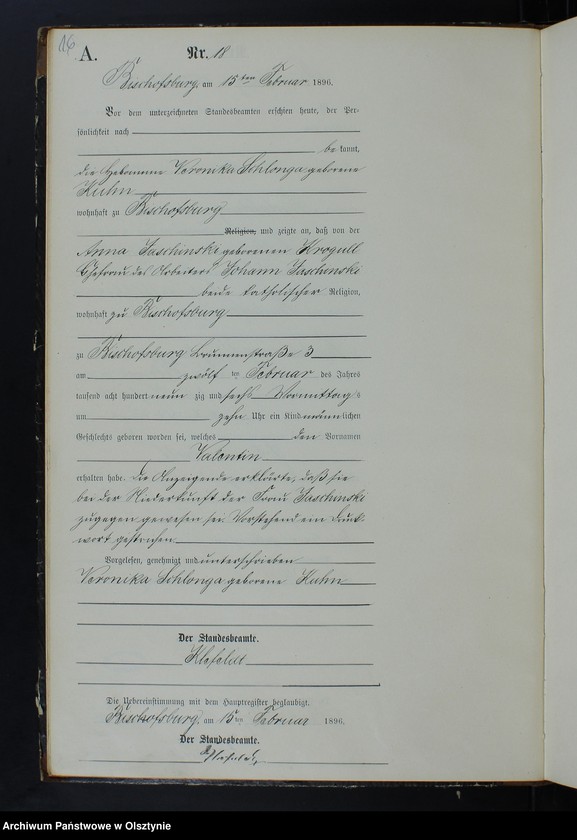 16
A.
Nr. 18
Bischofsburg, am 15ten Februar 1896.
Vor dem unterzeichneten Standesbeamten erschien heute, der Per-
sönlichkeit nach
bekannt,
die Hebamme Veronika Schlonga geborene
Kuhn
wohnhaft zu Bischofsburg
Religion, und zeigte an, daß von der
Anna Jaschinski geborenen Krogull
Ehefrau des Arbeiters Johann Jaschinski
beide katholischer Religion,
wohnhaft zu Bischofsburg
zu Bischofsburg Brunnenstraße 3
am zwölf ten Februar des Jahres
tausend acht hundert neun zig und sechs Vormittags
um zehn Uhr ein Kind männlichen
Geschlechts geboren worden sei, welches den Vornamen
Valentin
erhalten habe. Die Anzeigende erklärte, daß sie
bei der Niederkunft der Frau Jaschinski
zugegen gewesen sei. Vorstehend ein Druck-
wort gestrichen.
Vorgelesen, genehmigt und unterschrieben
Veronika Schlonga geborene Kuhn
Der Standesbeamte.
Klefeldt
Die Uebereinstimmung mit dem Hauptregister beglaubigt.
Bischofsburg, am 15ten Februar 1896.
Der Standesbeamte.
Archiwum Państwowe w Olsztynie